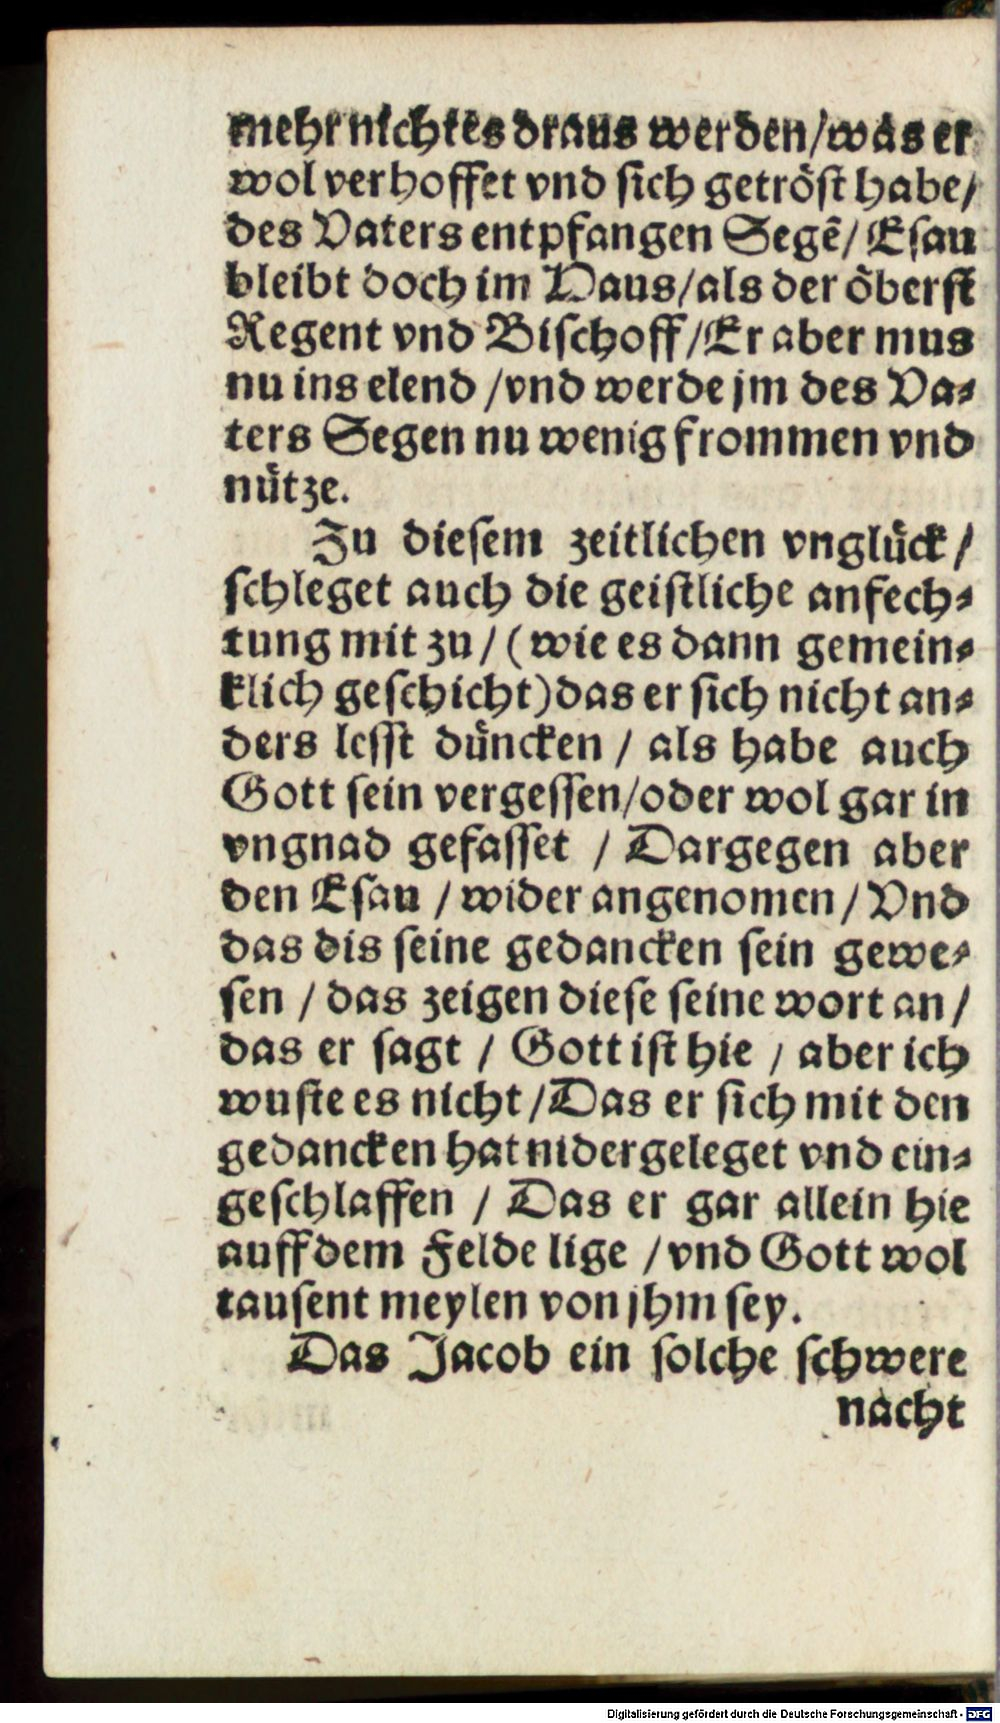 mehr nichtes draus werden/was er
wol verhoffet vnd sich getröst habe/
des Vaters entpfangen Segẽ/ Esau
bleibt doch im Haus/als der öberst
Regent vnd Bischoff/Er aber mus
nu ins elend /vnd werde jm des Va⸗
ters Segen nu wenig frommen vnd
nütze.
Zu diesem zeitlichen vnglück /
schleget auch die geistliche anfech⸗
tung mit zu / (wie es dann gemein⸗
klich geschicht) das er sich nicht an⸗
ders lesst düncken / als habe auch
Gott sein vergessen/oder wol gar in
vngnad gefasset / Dargegen aber
den Esau / wider angenomen / Vnd
das dis seine gedancken sein gewe⸗
sen / das zeigen diese seine wort an /
das er sagt / Gott ist hie / aber ich
wuste es nicht /Das er sich mit den
gedancken hat nidergeleget vnd ein⸗
geschlaffen / Das er gar allein hie
auff dem Felde lige / vnd Gott wol
tausent meylen von jhm sey.
Das Jacob ein solche schwere
nacht
Digitalisierung gefördert durch die Deutsche Forschungsgemeinschaft - DFG